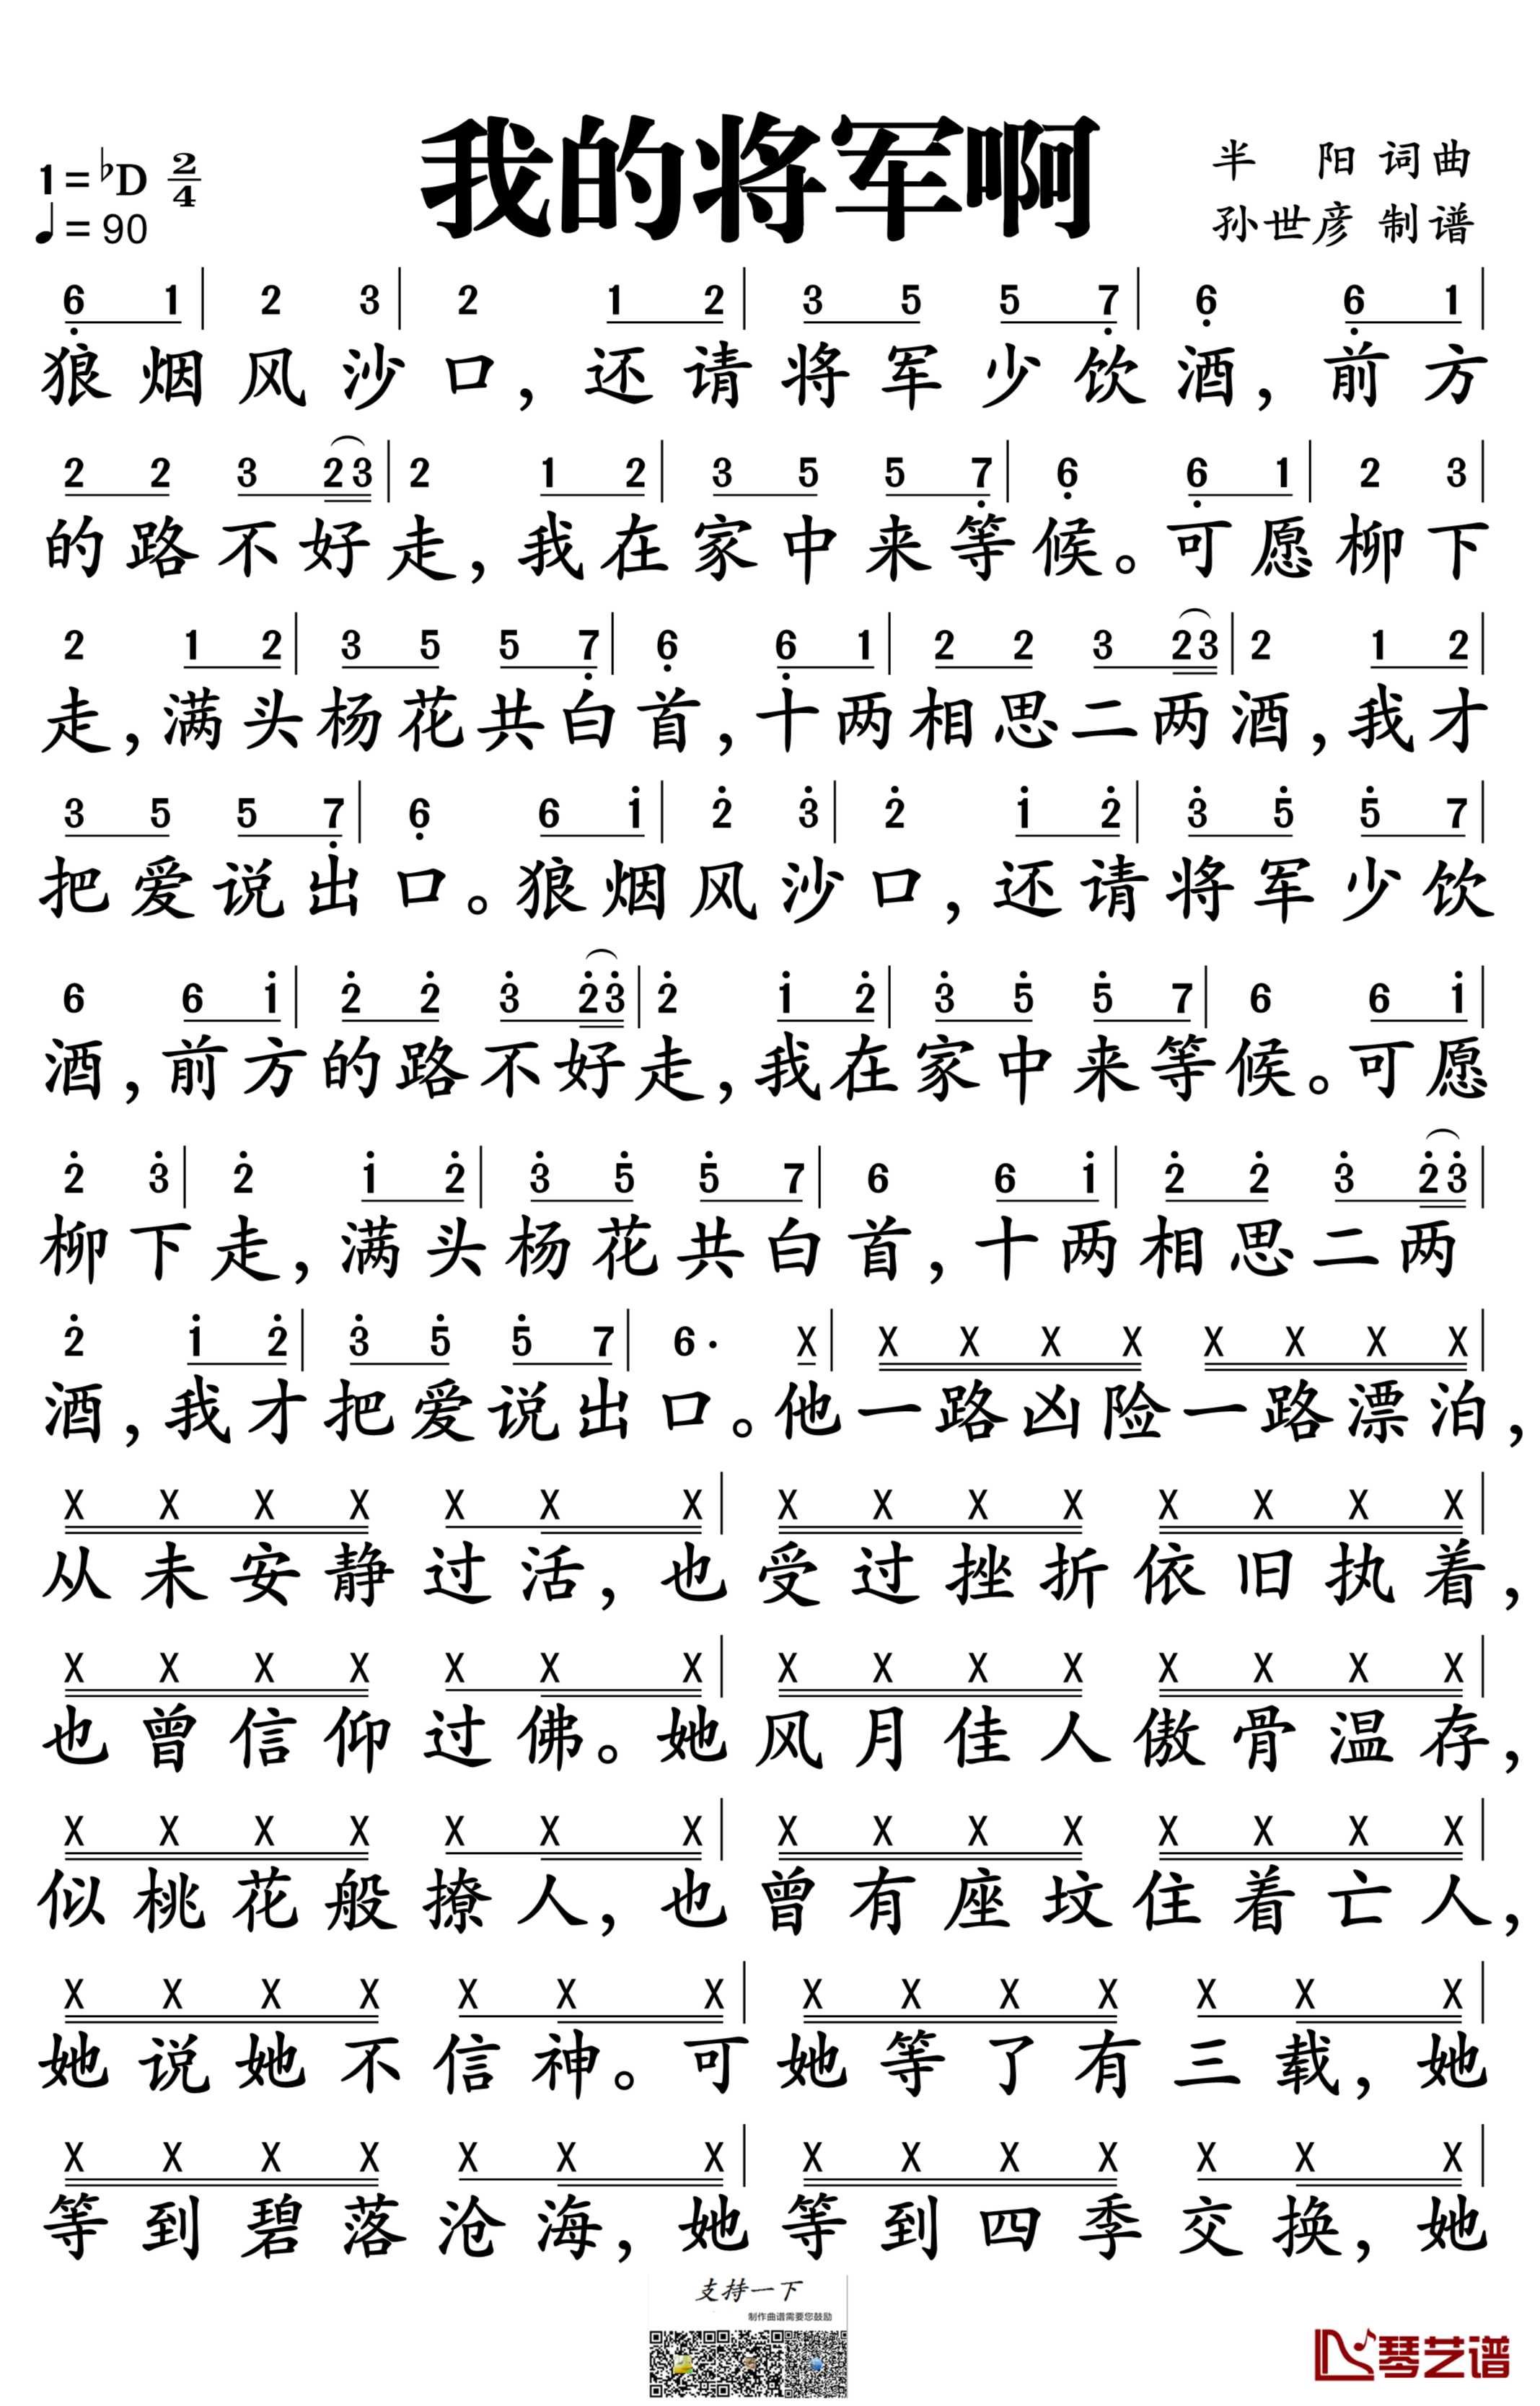 我的将军啊
1=♭D 2/4
♩=90
半 阳 词曲
孙世彦 制谱
6̣ 1 | 2 3 | 2 1 2 | 3 5 5 7̣ | 6̣ 6̣ 1 |
狼烟风沙口，还请将军少饮酒，前方
2 2 3 2 3 | 2 1 2 | 3 5 5 7̣ | 6̣ 6̣ 1 | 2 3 |
的路不好走，我在家中来等候。可愿柳下
2 1 2 | 3 5 5 7̣ | 6̣ 6̣ 1 | 2 2 3 2 3 | 2 1 2 |
走，满头杨花共白首，十两相思二两酒，我才
3 5 5 7̣ | 6̣ 6 1̇ | 2̇ 3̇ | 2̇ 1̇ 2̇ | 3̇ 5̇ 5̇ 7 |
把爱说出口。狼烟风沙口，还请将军少饮
6 6 1̇ | 2̇ 2̇ 3̇ 2̇ 3̇ | 2̇ 1̇ 2̇ | 3̇ 5̇ 5̇ 7 | 6 6 1̇ |
酒，前方的路不好走，我在家中来等候。可愿
2̇ 3̇ | 2̇ 1̇ 2̇ | 3̇ 5̇ 5̇ 7 | 6 6 1̇ | 2̇ 2̇ 3̇ 2̇ 3̇ |
柳下走，满头杨花共白首，十两相思二两
2̇ 1̇ 2̇ | 3̇ 5̇ 5̇ 7 | 6· X | X X X X X X X X |
酒，我才把爱说出口。他一路凶险一路漂泊，
X X X X X X X | X X X X X X X X |
从未安静过活，也受过挫折依旧执着，
X X X X X X X | X X X X X X X X |
也曾信仰过佛。她风月佳人傲骨温存，
X X X X X X X | X X X X X X X X |
似桃花般撩人，也曾有座坟住着亡人，
X X X X X X X | X X X X X X X |
她说她不信神。可她等了有三载，她
X X X X X X X | X X X X X X X |
等到碧落沧海，她等到四季交换，她
支持一下
制作曲谱需要您鼓励
琴艺谱